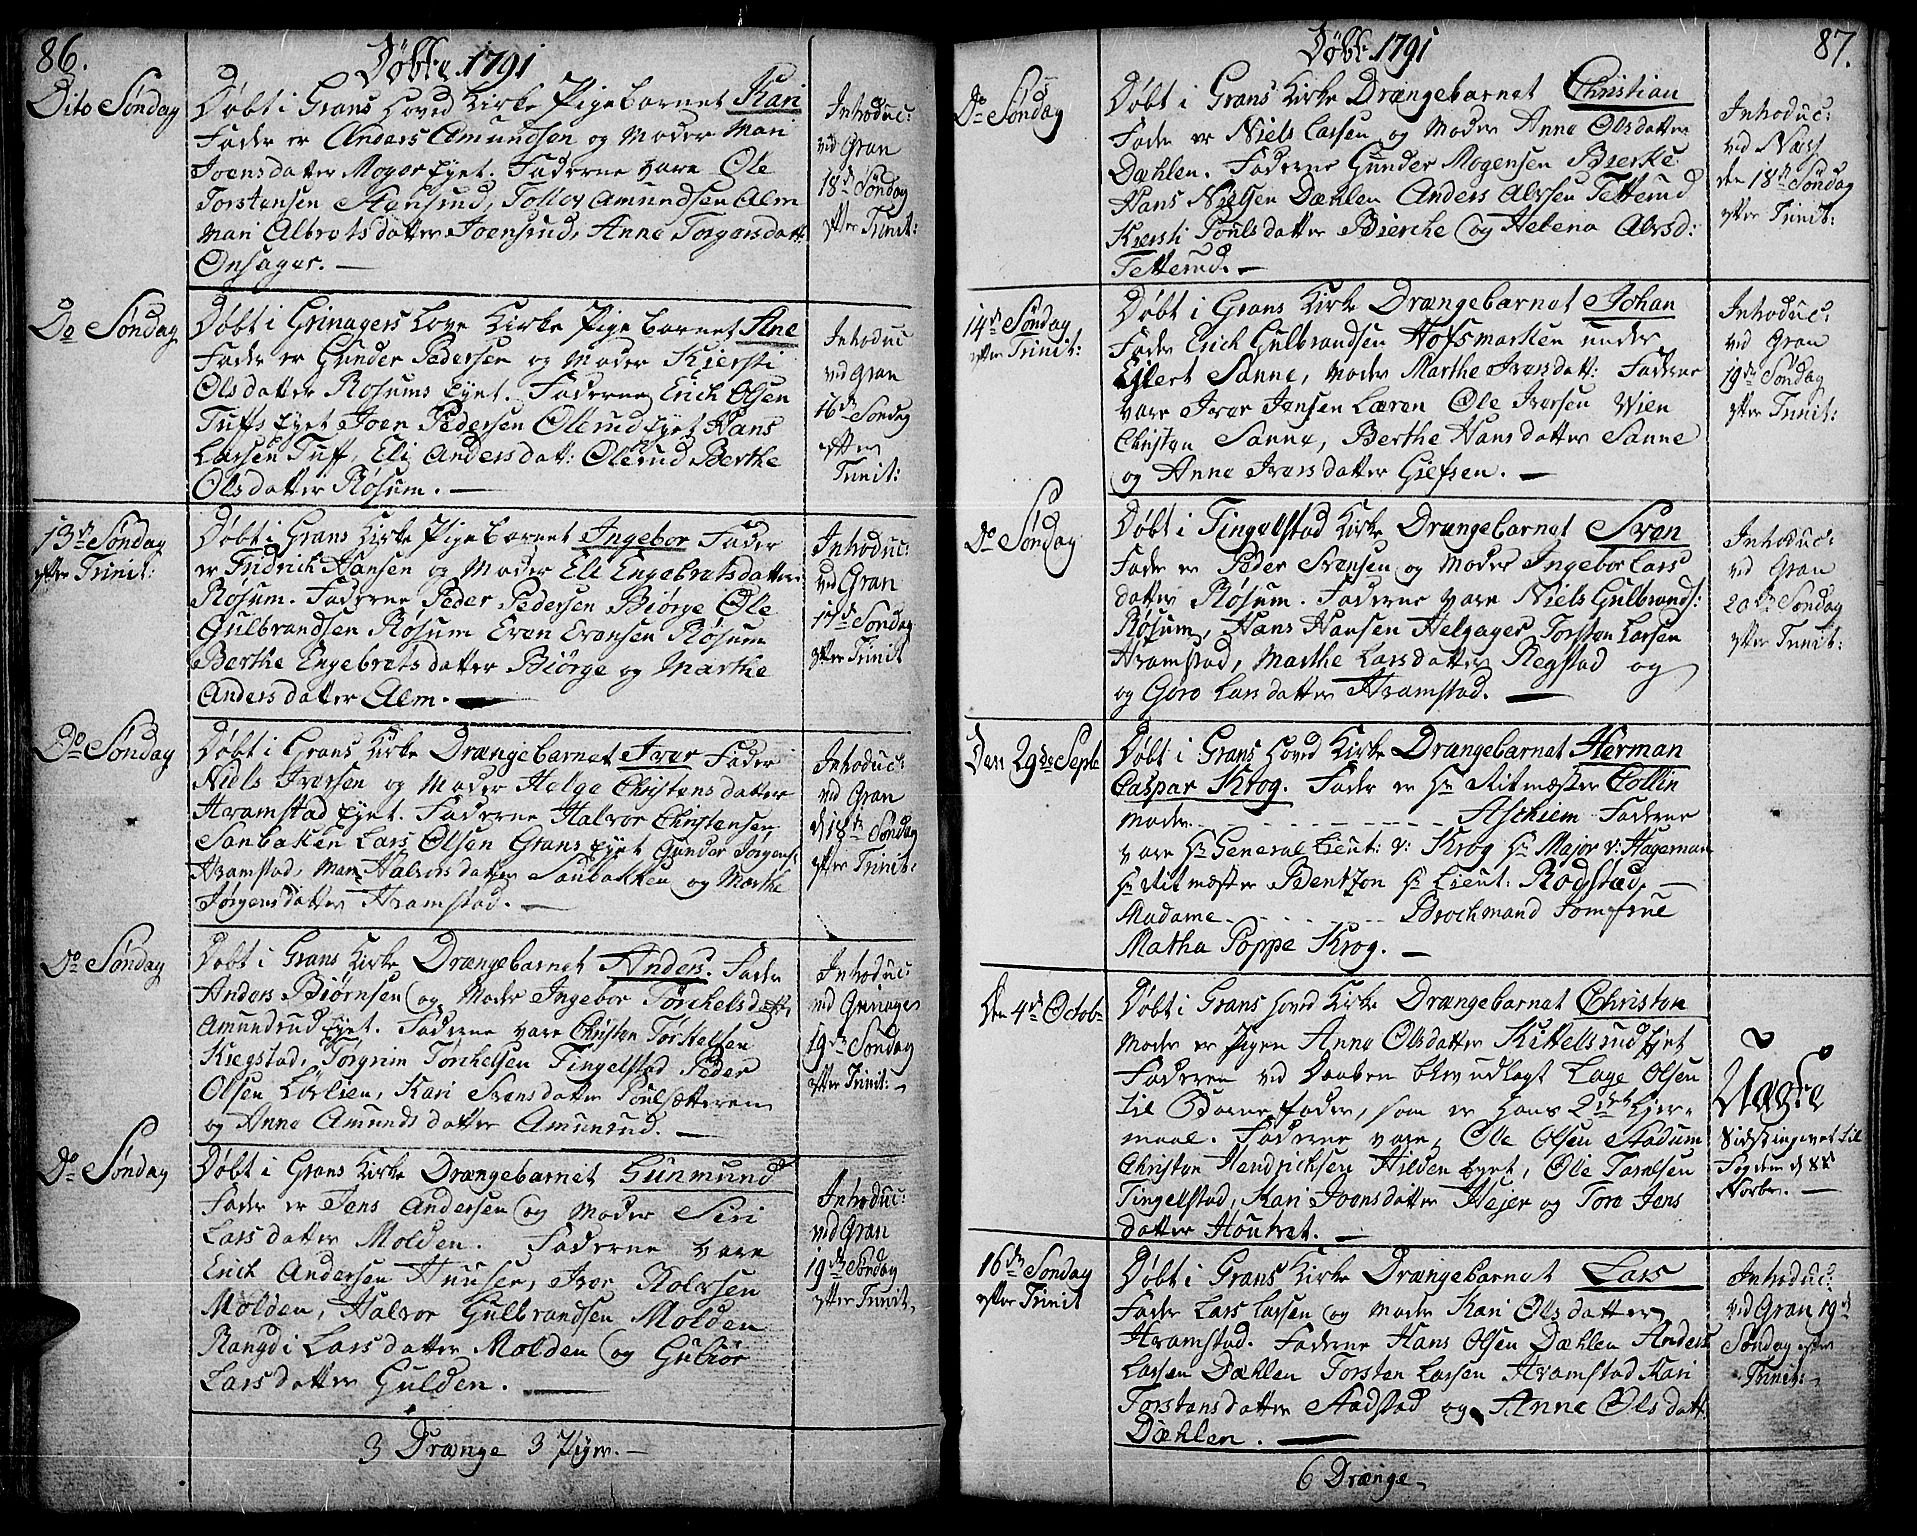 86.
Døbte 1791
Dito Søndag
Døbt i Grans Hoved Kirke Pigebarnet Kari
Fader er Anders Amundsen og Moder Mari
Joensdatter Moger Eyet. Faderne vare Ole
Torstensen Stensrud, Tollov Amundsen Alm
Mari Albretsdatter Joensrud, Anne Torgersdatt:
Onsager. —
Introduc:
ved Gran
18de Søndag
efter Trinit:
Do Søndag
Døbt i Grinagers Kirke Pigebarnet Ane
Fader er Gunder Pedersen og Moder Kiersti
Olsdatter Røsums Eyet. Faderne Erich Olsen
Tufs Eyet Joen Pedersen Ølerud Eyet Hans
Larsen Tuf, Eli Andersdat: Ølerud Berthe
Olsdatter Røsum. —
Introduc
ved Gran
16de Søndag
efter
Trinit:
13de Søndag
efter Trinit:
Døbt i Grans Kirke Pigebarnet Ingebor Fader
er Fridrich Hansen og Moder Eli Engebretsdatter
Røsum. Faderne Peder Pedersen Biørge Ole
Gulbrandsen Røsum Even Evensen Røsum
Berthe Engebretsdatter Biørge og Marthe
Andersdatter Alm. —
Introduc:
ved Gran
17de Søndag
efter Trinit
Do Søndag
Døbt i Grans Kirke Drængebarnet Iver Fader
Niels Iversen og Moder Helge Christensdatter
Hvamstad Eyet. Faderne Halvor Christensen
Sanbaken Lars Olsen Grans Eyet Gunder Jørgens:
Hvamstad, Mari Halvorsdatter Sanbakken og Marthe
Jørgensdatter Hvamstad. —
Introduc:
ved Gran
d 18de Søndag
efter Trinit:
Do Søndag
Døbt i Grans Kirke Drængebarnet Anders. Fader
Anders Biørnsen og Moder Ingebor Tørchelsdatt:
Amundrud Eyet. Faderne vare Christen Tørkelsen
Kiegstad, Tørgrim Tørchelsen Tingelstad Peder
Olsen Lørlien, Kari Svensdatter Poulsætteren
og Anne Amundsdatter Amunrud. —
Introduc:
ved Grinager
19de Søndag
efter Trinit: —
Do Søndag
Døbt i Grans Kirke Drængebarnet Gunmund
Fader er Jens Andersen og Moder Siri
Larsdatter Molden. Faderne vare
Erich Andersen Huuser, Iver Rolvsen
Molden, Halvor Gulbrandsen Molden
Rangdi Larsdatter Molden og Gubiør
Larsdatter Gulden. —
Introduc:
ved Gran
19de Søndag
efter Trinit.
3 Drænge 3 Piger. —
87.
Døbte 1791
Do Søndag
Døbt i Grans Kirke Drængebarnet Christian
Fader er Niels Larsen og Moder Anne Olsdatter
Dæhlen. Faderne Gunder Mogensen Bierke
Hans Nielsen Dæhlen Anders Alvsen Tetterud
Kiersti Poulsdatter Bierche og Helena Alvsd:
Tetterud. —
Introduc:
ved Næst
den 18de Søndag
efter Trinit:
14de Søndag
efter Trinit:
Døbt i Grans Kirke Drængebarnet Johan
Fader Erich Gulbrandsen Hofsmarken under
Eilert Sanne, Moder Marthe Iversdatt: Faderne
vare Iver Jensen Læren Ole Iversen Wien
Christen Sanne, Berthe Hansdatter Sanne
og Anne Iversdatter Giefsen. —
Introduc:
ved Gran
19de Søndag
efter Trinit:
Do Søndag
Døbt i Tingelstad Kirke Drængebarnet Sven
Fader er Peder Svensen og Moder Ingebor Lars
datter Røsum. Faderne vare Niels Gulbrands:
Røsum, Hans Hansen Helgager Torsten Larsen
Hvamstad, Marthe Larsdatter Regstad og
og Goro Larsdatter Hvamstad. —
Introduc:
ved Gran
20de Søndag
efter Trinit:
Den 29de Septe
Døbt i Grans Hoved Kirke Drængebarnet Herman
Caspar Krog. Fader er Hr Ritmæster Collin
Moder - - - - - - - - - Aschiem Faderne
vare Hr General Lieut: v: Krog Hr Major v: Hageman
Hr Ritmæster Bentzon Hr Lieut: Rodstad, —
Madame - - - - - - Brochmand Jomfrue
Matha Poppe Krog. —
Den 4de Octobr
Døbt i Grans Hoved Kirke Drængebarnet Christen
Moder er Pigen Anne Olsdatter Kittelsrud Eyet
Faderen ved Daaben blev udlagt Lage Olsen
til Barne Fader, som er Hans 2det Leyer-
maal. Faderne vare, Ole Olsen Stadum
Christen Hendrichsen Hilden Eyet, Ole Taralsen
Tingelstad, Kari Ivensdatter Hejer og Tore Jens
datter Houtvet. —
Nægte
Fogden d 88
Norbr. —
16de Søndag
efter Trinit
Døbt i Grans Kirke Drængebarnet Lars
Fader Lars Larsen og Moder Kari Olsdatter
Hvamstad. Faderne Hans Olsen Dæhlen Anders
Larsen Dæhlen Torsten Larsen Hvamstad Kari
Torstensdatter Aadstad og Anne Olsdatt:
Dæhlen. —
Introduc:
ved Gran 19de
Søndag efter
Trinit: —
6 Drænge